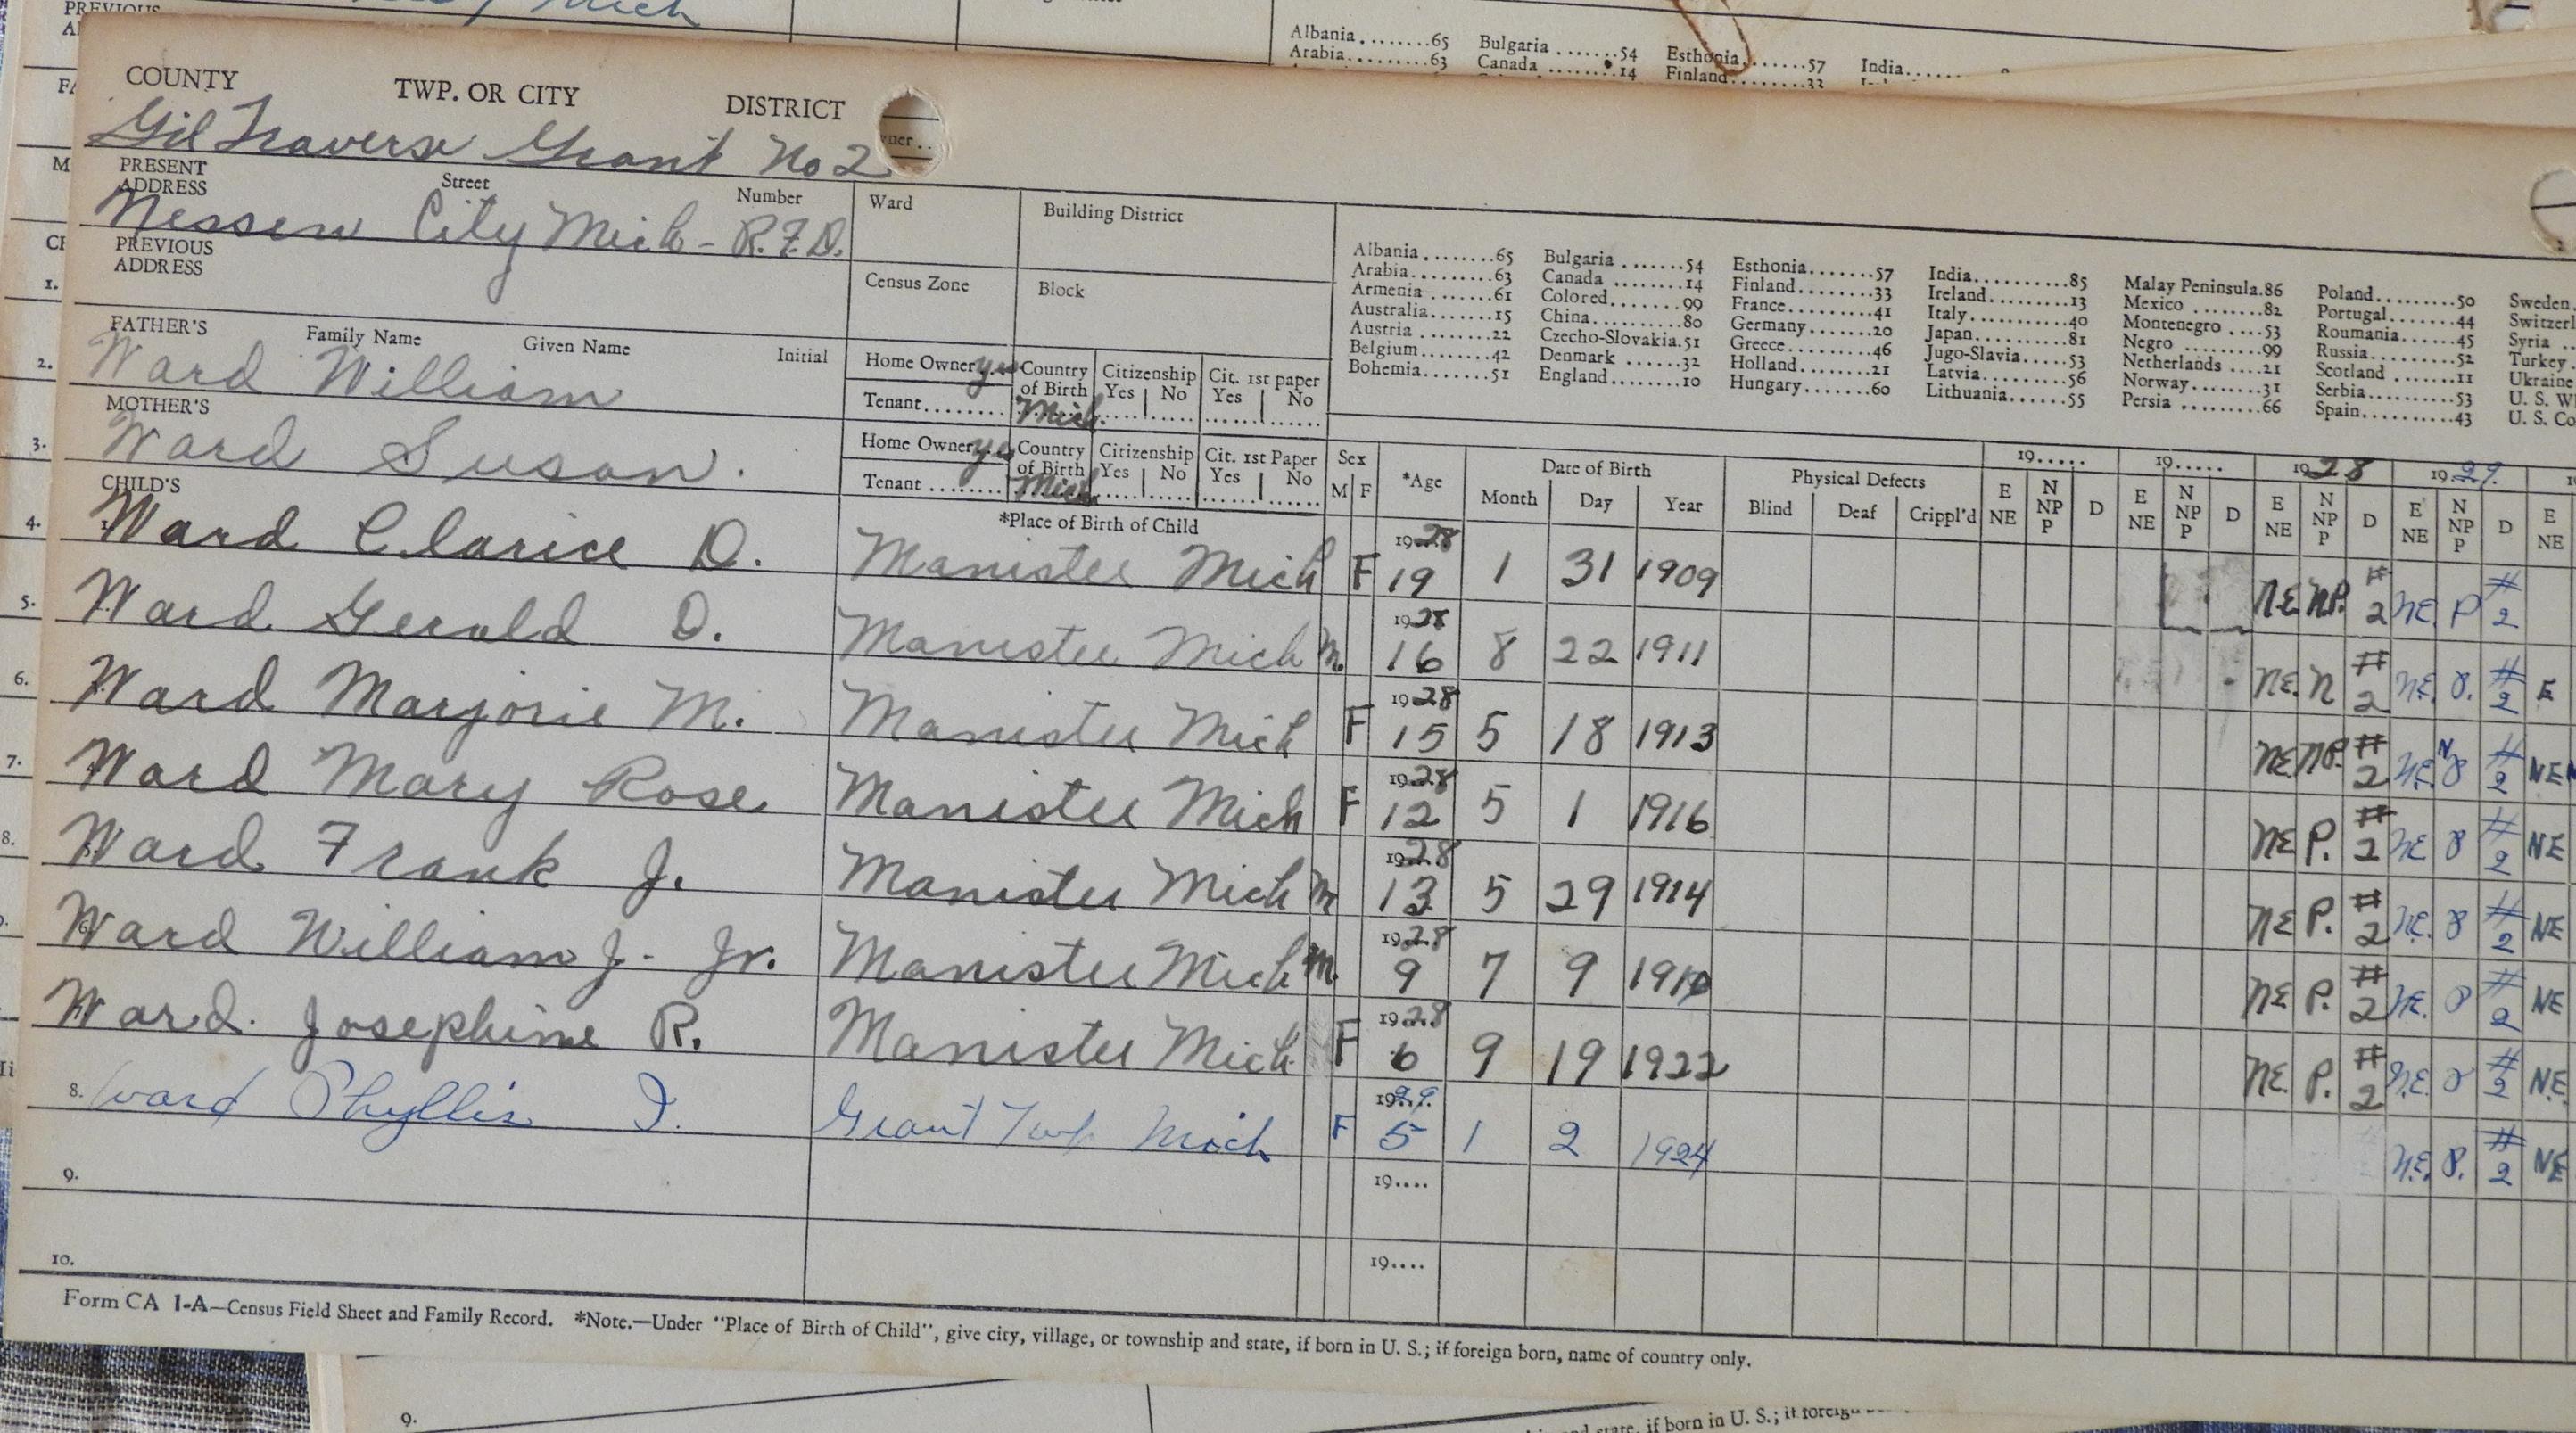 PREVIOUS
Mich
Albania ........65 Bulgaria .......54 Esthonia.......57 India......
Arabia.........63 Canada ........14 Finland........33
COUNTY TWP. OR CITY DISTRICT
Gil Traverse Grant No 2
ner..
PRESENT ADDRESS Street Number
Nessen City Mich - R.F.D.
Ward Building District
PREVIOUS ADDRESS
Census Zone Block
Albania ........65 Bulgaria .......54 Esthonia.......57 India..........85 Malay Peninsula.86 Poland.........50 Sweden.
Arabia.........63 Canada ........14 Finland........33 Ireland.........13 Mexico ........82 Portugal.......44 Switzerl
Armenia .......61 Colored........99 France.........41 Italy...........40 Montenegro ....53 Roumania......45 Syria ..
Australia.......15 China..........80 Germany.......20 Japan..........81 Negro .........99 Russia.........52 Turkey .
Austria ........22 Czecho-Slovakia.51 Greece.........46 Jugo-Slavia.....53 Netherlands ....21 Scotland .......11 Ukraine
Belgium .......42 Denmark .......32 Holland........21 Latvia..........56 Norway........31 Serbia..........53 U. S. W
Bohemia.......51 England........10 Hungary.......60 Lithuania......55 Persia .........66 Spain..........43 U. S. Co
FATHER'S Family Name Given Name Initial
Ward William
Home Owner yes Country of Birth Citizenship Yes No Cit. 1st paper Yes No
Tenant........ Mich.
MOTHER'S
Ward Susan.
Home Owner yes Country of Birth Citizenship Yes No Cit. 1st Paper Yes No
Tenant ........ Mich
CHILD'S *Place of Birth of Child Sex M F *Age Date of Birth Month Day Year Physical Defects Blind Deaf Crippl'd
19..... 19..... 1928 1929.
E NE N NP P D E NE N NP P D E NE N NP P D E NE N NP P D E NE
1. Ward Clarice D. Manistee Mich F 1928 19 1 31 1909 NE NP. #2 NE. P #2
Ward Gerald D. Manistee Mich M. 1928 16 8 22 1911 NE. N #2 NE. P. #2 E
Ward Marjorie M. Manistee Mich F 1928 15 5 18 1913 NE NP. #2 NE. N P #2 NE
Ward Mary Rose Manistee Mich F 1928 12 5 1 1916 NE P. #2 NE P #2 NE
Ward Frank J. Manistee Mich M 1928 13 5 29 1914 NE P. #2 NE. P #2 NE
6. Ward William J. Jr. Manistee Mich M. 1928 9 7 9 NE P. #2 NE. P #2 NE
Ward. Josephine R. Manistee Mich F 1928 6 9 19 1922 NE. P. #2 N.E. P #2 N.E.
8. Ward Phyllis I. Grant Twp Mich F 1929. 5 1 2 1924 N.E. P. #2 NE
9. 19....
10. 19....
Form CA 1-A—Census Field Sheet and Family Record. *Note.—Under "Place of Birth of Child", give city, village, or township and state, if born in U. S.; if foreign born, name of country only.
9.
state, if born in U. S.; if foreign